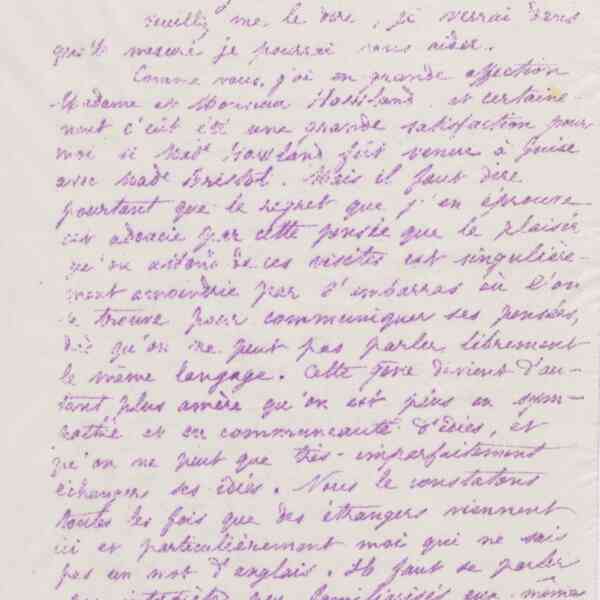 veuillez me le dire, je verrai dans
quelle mesure je pourrai vous aider.
Comme vous, j'ai en grande affection
Madame et Monsieur Howland et certaine-
ment c'eût été une grande satisfaction pour
moi si Made Howland fût venue à Guise
avec Made Bristol. Mais il faut dire
pourtant que le regret que j'en éprouve
est adoucie par cette pensée que le plaisir
qu'on attend de ces visites est singulière-
ment amoindrie par l'embarras où l'on
se trouve pour communiquer ses pensées,
dès qu'on ne peut pas parler librement
le même langage. Cette gêne devient d'au-
tant plus amère qu'on est plus en sym-
pathie et en communauté d'idées, et
qu'on ne peut que très-imparfaitement
échanger ses idées. Nous le constatons
toutes les fois que des étrangers viennent
ici et particulièrement moi qui ne sais
pas un mot d'anglais. Il faut se parler
peu familiarisés eux-mêmes